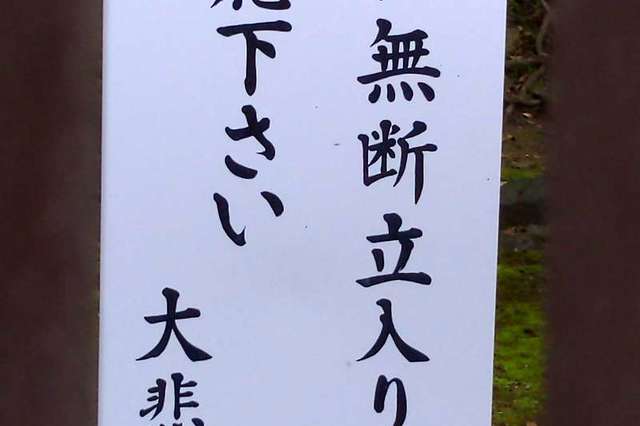 無断立入り
下さい
大悲